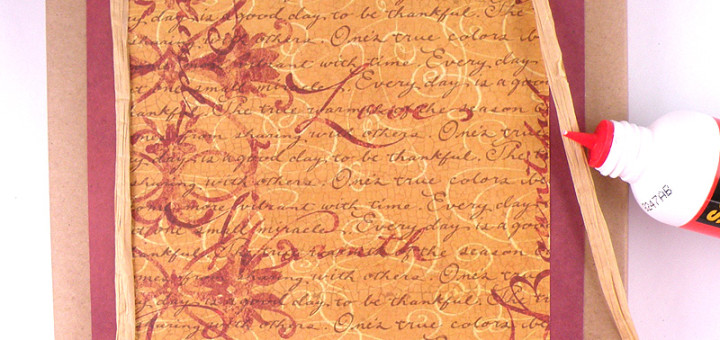 day is a good day to be thankful. The
sharing with others. One's true colors
more vibrant with time. Every day
one small miracle. Every day is a
The true warmth of the season
from sharing with others. One's true
day is a good day to be thankful. The
sharing with others. One's true colors
more vibrant with time. Every day
one small miracle. Every day is a good
The true warmth of the season
from sharing with others. One's true
day is a good day to be thankful. The
sharing with others. One's true colors
247AB